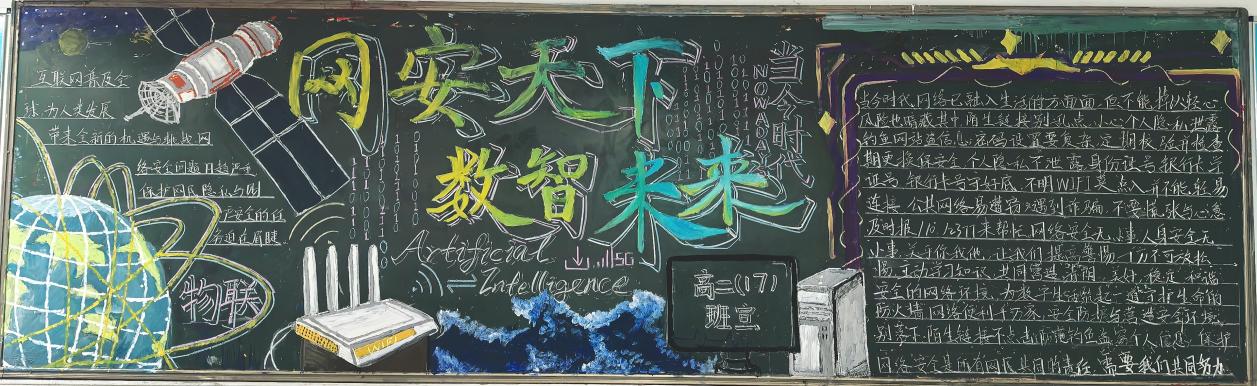 互联网普及全
球,为人类发展
带来全新的机遇与挑战,网
络安全问题日趋严重
保护网民隐私与财
产安全的任
务迫在眉睫
物联
网安天下
数智未来
Artificial
Intelligence
5G
WIFI
当今时代
NOWADAYS
高二(17)
班宣
当今时代,网络已融入生活的方方面面,但不能掉以轻心
风险也暗藏其中,陌生链接别乱点,小心个人隐私泄露
钓鱼网站盗信息,密码设置要复杂,定期
期更换保安全,个人隐私不泄露,身份证号银行卡号
证号,银行卡号守好底,不明WIFI莫点入,并不能轻易
连接,公共网络易遭窃,遇到诈骗,不要慌张与心急
及时报110,12377来帮忙,网络安全无小事,人身安全无
小事,关乎你我他,让我们提高警惕,一刻不可放松
惕,主动学习知识,共同营造清朗,美好,稳定,和谐
安全的网络环境,为数字生活筑起一道守护生命的
防火墙,网络便利千万家,安全防护与营造安全环境
别落下,陌生链接不点击,防范钓鱼盗窃个人信息,保护
网络安全是所有网民共同的责任,需要我们共同努力